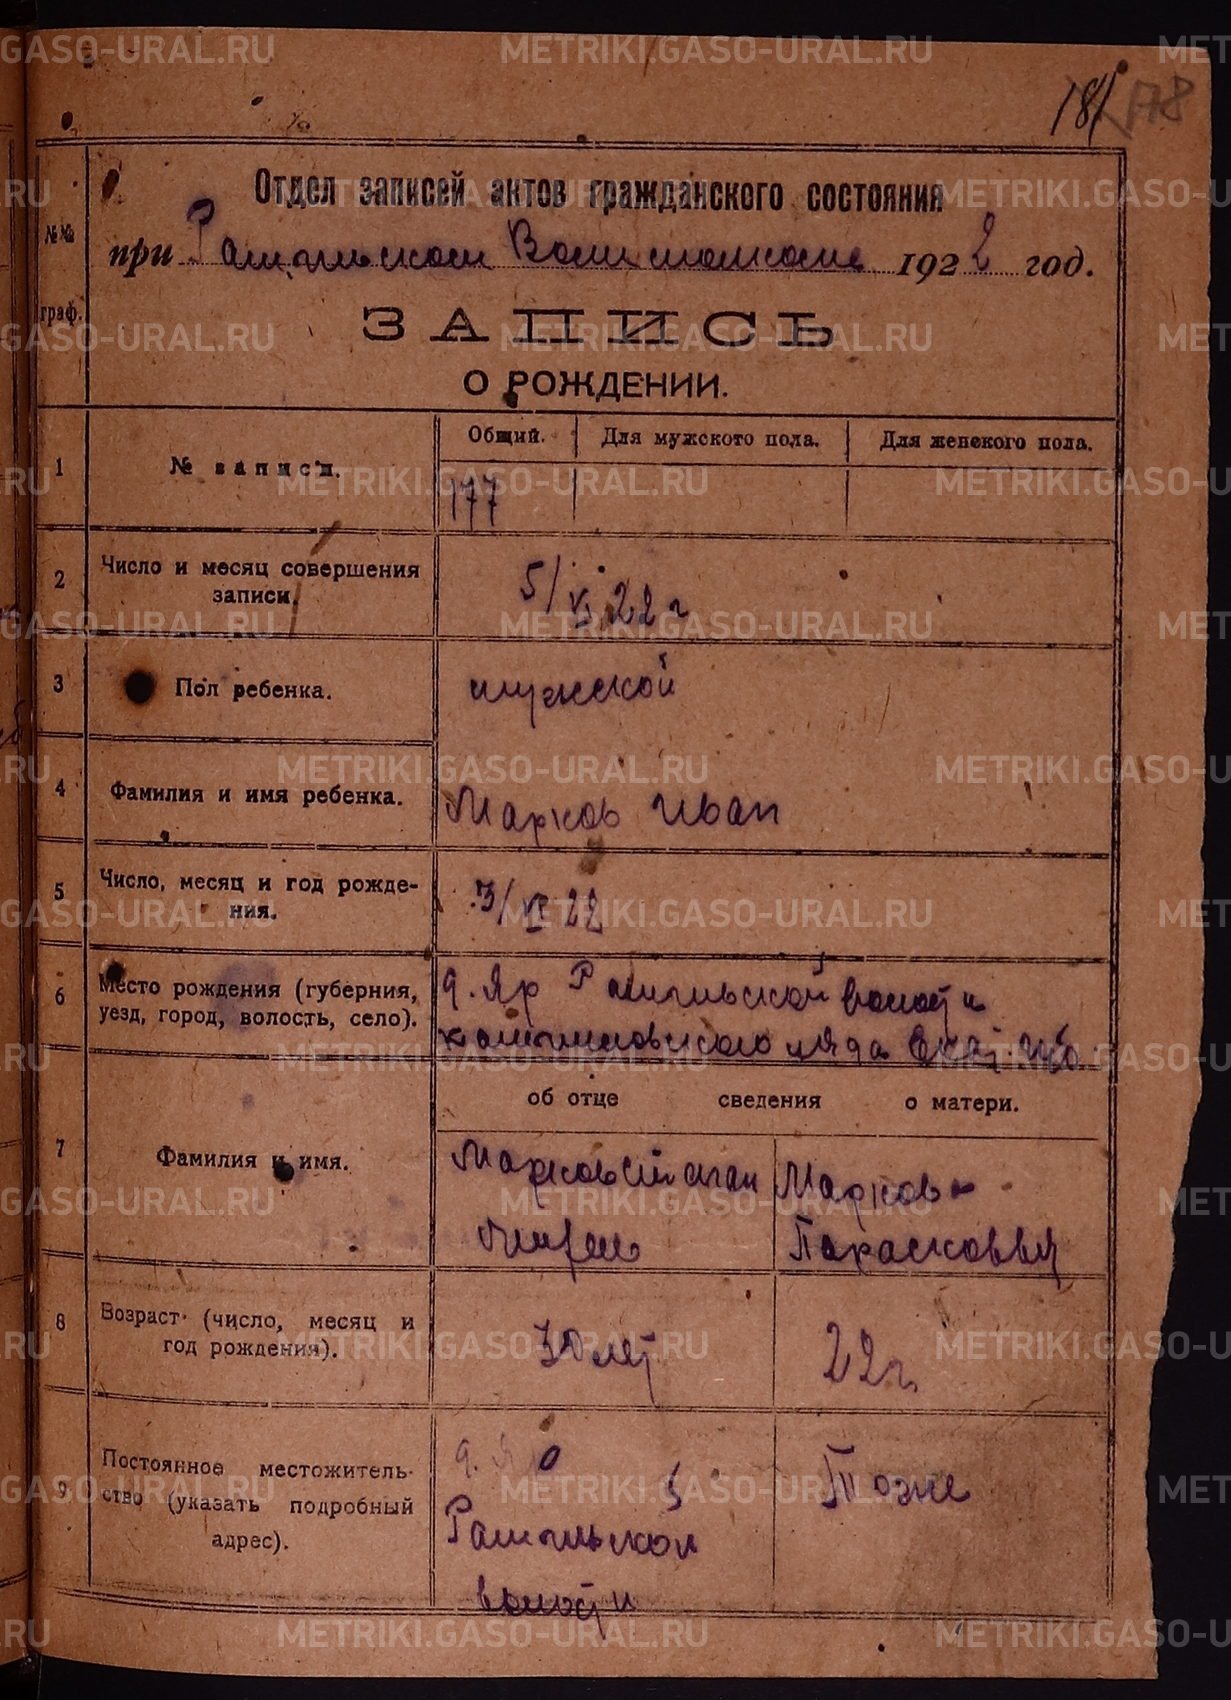 181 178
Отдел записей актов гражданского состояния
при Рамыльском Волисполкоме 1922 год.
№№ граф.
ЗАПИСЬ
О РОЖДЕНИИ.
Общий. Для мужского пола. Для женского пола.
1 № записи. 177
2 Число и месяц совершения записи. 5/VI 22 г
3 Пол ребенка. мужской
4 Фамилия и имя ребенка. Марков Иван
5 Число, месяц и год рожде-
ния. 3/VI 22
6 Место рождения (губерния,
уезд, город, волость, село). д. Яр волости
уезда Екат. губ.
об отце сведения о матери.
7 Фамилия и имя. Марков Степан Маркова
Парасковья
8 Возраст (число, месяц и
год рождения). 30 лет 22 г.
9 Постоянное местожитель-
ство (указать подробный
адрес). д. Яр
волости
Тоже
METRIKI.GASO-URAL.RU